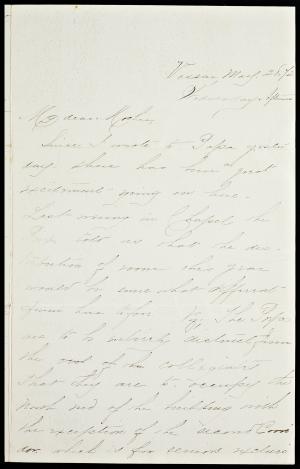 Vassar May 28/72
Wednesday Afternoon
My dear Mother,
Since I wrote to Papa yester
day there has been great
excitement going on here.
Last evening in Chapel the
Prex told us that the dis-
tribution of rooms this year
would be some what different
from
before
The Preps
are to be entirely distinct from
the rest of the collegiates
That they are to occupy the
North end of the building with
the exception of the second Corri
dor which is for seniors exclusi